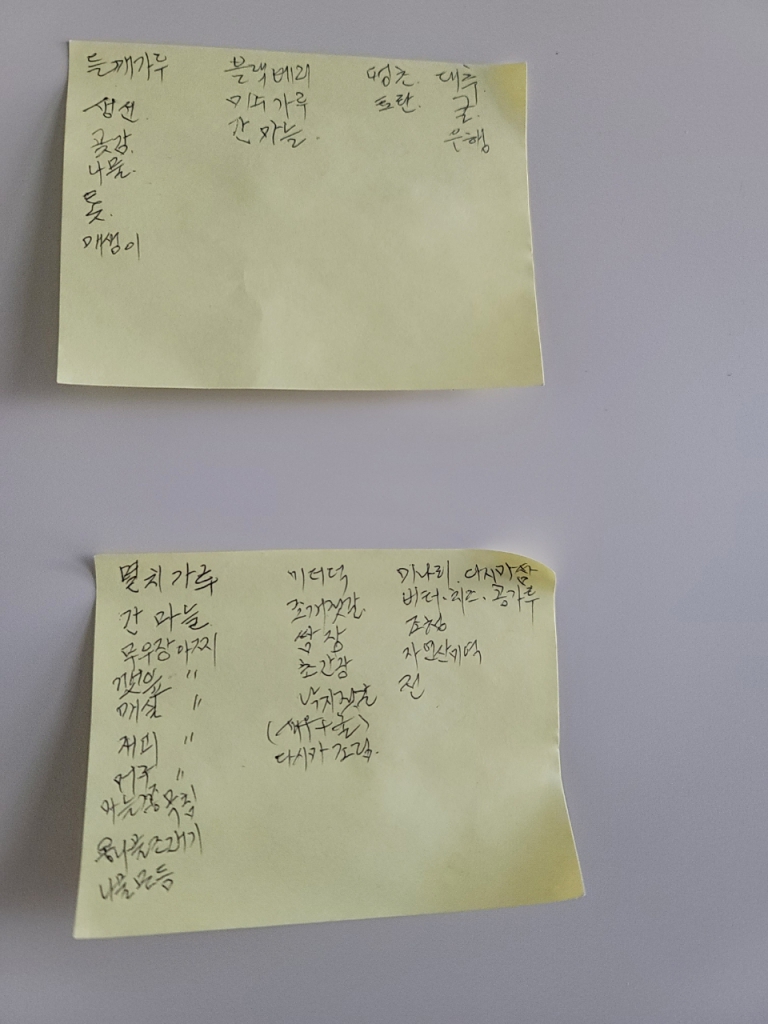 들깨가루
생선
곶감
나물
톳
매생이
블랙베리
미싯가루
간 마늘
땡초 대추
토란 굴
은행
멸치가루
간 마늘
무우장아찌
깻잎 〃
매실 〃
제피 〃
〃
마늘쫑 무침
콩나물
나물모듬
미더덕
조개젓갈
쌈장
초간장
낙지젓갈
(새우)
다시마 조림
미나리. 다시마쌈
버터.치즈.콩가루
조청
자연산미역
전